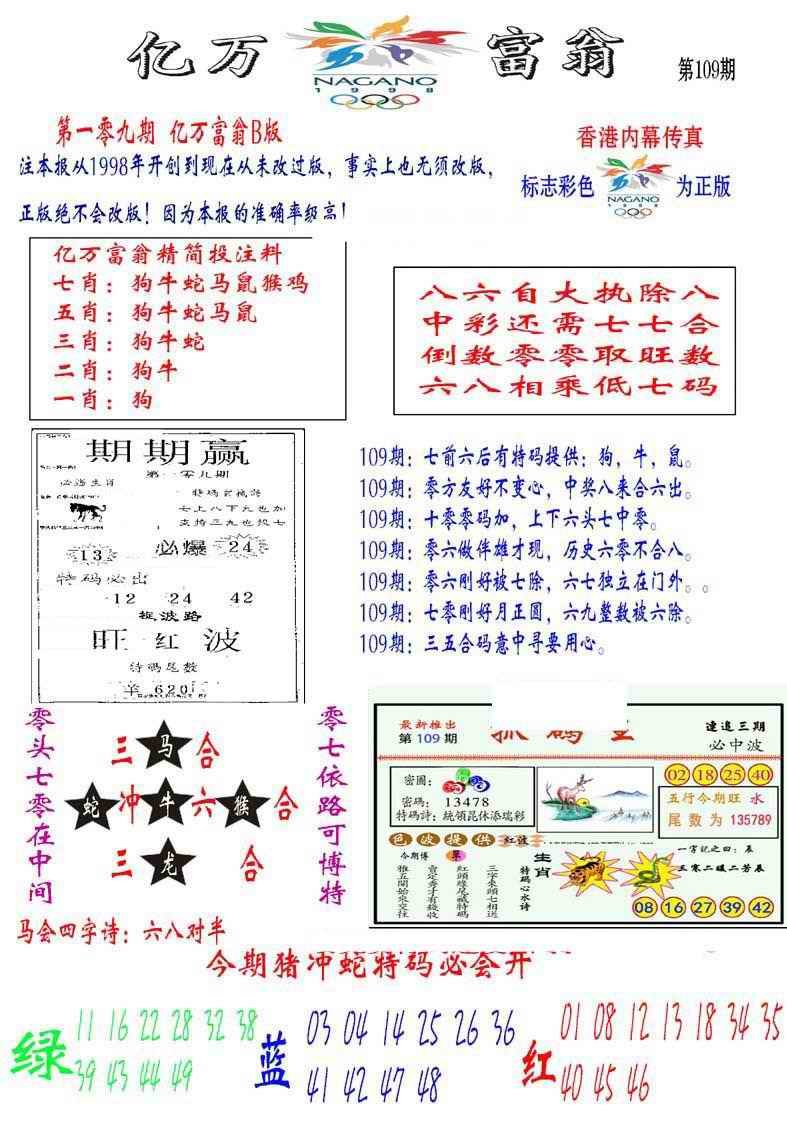 亿万
NAGANO
1998
富翁
第109期
第一零九期 亿万富翁B版
注本报从1998年开创到现在从未改过版，事实上也无须改版，
正版绝不会改版！因为本报的准确率级高！
香港内幕传真
标志彩色
NAGANO
1998
为正版
亿万富翁精简投注料
七肖：狗牛蛇马鼠猴鸡
五肖：狗牛蛇马鼠
三肖：狗牛蛇
二肖：狗牛
一肖：狗
八六自大执除八
中彩还需七七合
倒数零零取旺数
六八相乘低七码
期期赢
第一零九期
必选生肖
七上八下九也加
支持三九也投七
13
必爆
24
特码必出
12 24 42
捉波路
旺红波
特码尾数
羊 620
109期：七前六后有特码提供：狗，牛，鼠。
109期：零方友好不变心，中奖八来合六出。
109期：十零零码加，上下六头七中零。
109期：零六做伴雄才现，历史六零不合八。
109期：零六刚好被七除，六七独立在门外。。
109期：七零刚好月正圆，六九整数被六除。
109期：三五合码意中寻要用心。
零头七零在中间
三 马 合
蛇 冲 牛 六 猴 合
三 龙 合
零七依路可博特
马会四字诗：六八对半
最新推出
第 109 期
連追三期
必中波
密圖：
密碼： 13478
特碼詩：統領昆休添瑞彩
02 18 25 40
五行今期旺 水
尾数为 135789
色波提供 红波
今期博 單
推五開始來交往
肯定秀才有錢收
紅頭綠尾藏特碼
三字來頭七相送
特碼心水诗
生肖
一字記之曰：辰
五寒二暖二芳辰
08 16 27 39 42
今期猪冲蛇特码必会开
绿
11 16 22 28 32 38
39 43 44 49
蓝
03 04 14 25 26 36
41 42 47 48
红
01 08 12 13 18 34 35
40 45 46